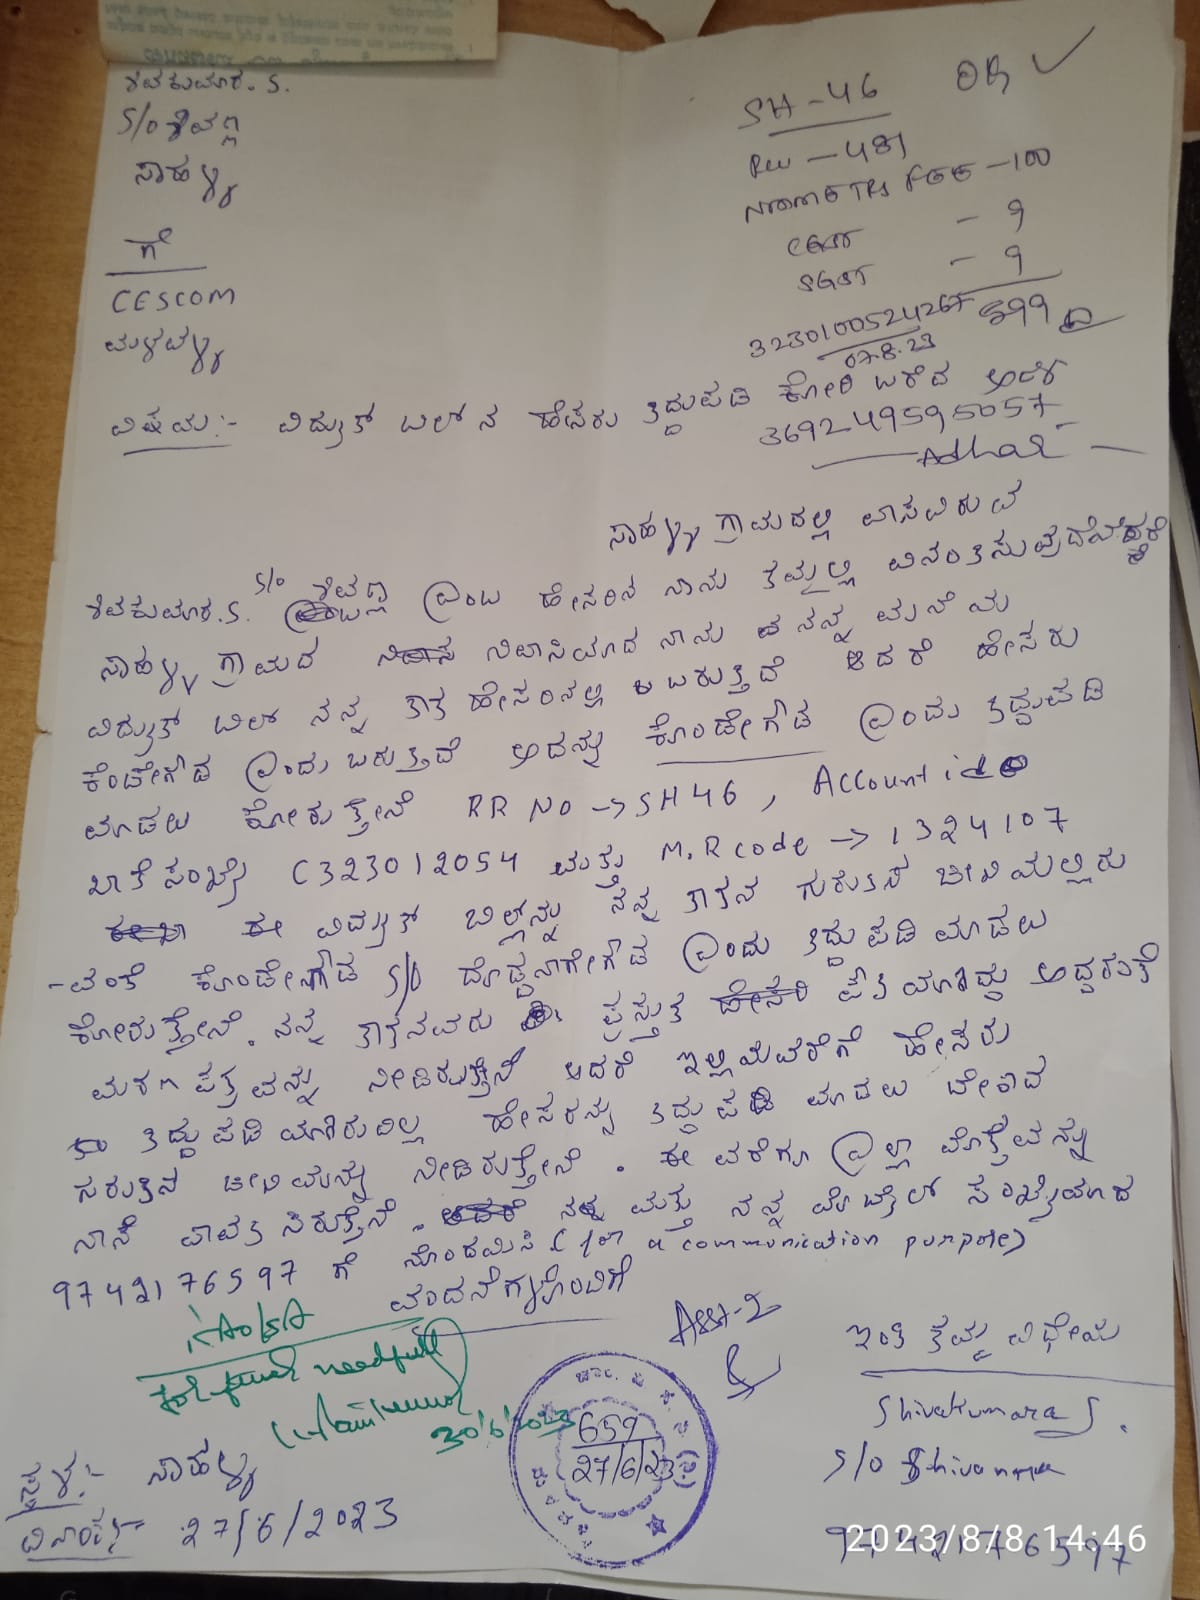 ಶಿವಕುಮಾರ. S.
S/o ಶಿವಣ್ಣ
ಸಾಹಳ್ಳಿ
ಗೆ
CESCOM
ಮಳವಳ್ಳಿ
SH - 46
481
FEE - 100
CGST - 9
SGST - 9
599
3230100524267
07.8.23
ವಿಷಯ:- ವಿದ್ಯುತ್ ಬಿಲ್ ನ ಹೆಸರು ತಿದ್ದುಪಡಿ ಕೋರಿ ಬರೆವ ಅರ್ಜಿ
369249595057
Adhar
ಸಾಹಳ್ಳಿ ಗ್ರಾಮದಲ್ಲಿ ವಾಸವಿರುವ
ಶಿವಕುಮಾರ. S. S/o ಶಿವಣ್ಣ ಎಂಬ ಹೆಸರಿನ ನಾನು ತಮ್ಮಲ್ಲಿ ವಿನಂತಿಸುವುದೇನೆಂದರೆ
ಸಾಹಳ್ಳಿ ಗ್ರಾಮದ ನಿವಾಸಿಯಾದ ನಾನು ನನ್ನ ಮನೆಯ
ವಿದ್ಯುತ್ ಬಿಲ್ ನನ್ನ ತಾತ ಹೆಸರಿನಲ್ಲಿ ಬರುತ್ತಿದೆ ಆದರೆ ಹೆಸರು
ಕೆಂಚೇಗೌಡ ಎಂದು ಬರುತ್ತಿದೆ ಅದನ್ನು ಕೊಂಡೇಗೌಡ ಎಂದು ತಿದ್ದುಪಡಿ
ಮಾಡಲು ಕೋರುತ್ತೇನೆ RR No -> SH46, Account id
ಖಾತೆ ಸಂಖ್ಯೆ C323012054 ಮತ್ತು M.R code -> 1324107
ಈ ವಿದ್ಯುತ್ ಬಿಲ್ಲನ್ನು ನನ್ನ ತಾತನ ಗುರುತಿನ ಚೀಟಿಯಲ್ಲಿರು
-ವಂತೆ ಕೊಂಡೇಗೌಡ S/o ದೊಡ್ಡನಾಗೇಗೌಡ ಎಂದು ತಿದ್ದುಪಡಿ ಮಾಡಲು
ಕೋರುತ್ತೇನೆ. ನನ್ನ ತಾತನವರು ಪ್ರಸ್ತುತ ಪೌತಿಯಾಗಿದ್ದು ಅದ್ದರಂತೆ
ಮರಣ ಪತ್ರವನ್ನು ನೀಡಿರುತ್ತೇನೆ ಆದರೆ ಇಲ್ಲಿಯವರೆಗೆ ಹೆಸರು
ತಿದ್ದುಪಡಿಯಾಗಿರುವುದಿಲ್ಲ ಹೆಸರನ್ನು ತಿದ್ದುಪಡಿ ಮಾಡಲು ಬೇಕಾದ
ಗುರುತಿನ ಚೀಟಿಯನ್ನು ನೀಡಿರುತ್ತೇನೆ. ಈವರೆಗೂ ಎಲ್ಲಾ ಮೊತ್ತವನ್ನು
ನಾನೆ ಪಾವತಿಸಿರುತ್ತೇನೆ. ಮತ್ತು ನನ್ನ ಮೊಬೈಲ್ ಸಂಖ್ಯೆಯಾದ
9742176597 ಗೆ ನೊಂದಯಿಸಿ (for a communication purpose)
ವಂದನೆಗಳೊಂದಿಗೆ
needful
30/6/2023
659
27/6/23
ಇಂತಿ ತಮ್ಮ ವಿಧೇಯ
Shivakumara S.
S/o Shivanna
9742176597
ಸ್ಥಳ:- ಸಾಹಳ್ಳಿ
ದಿನಾಂಕ:- 27/6/2023
2023/8/8 14:46